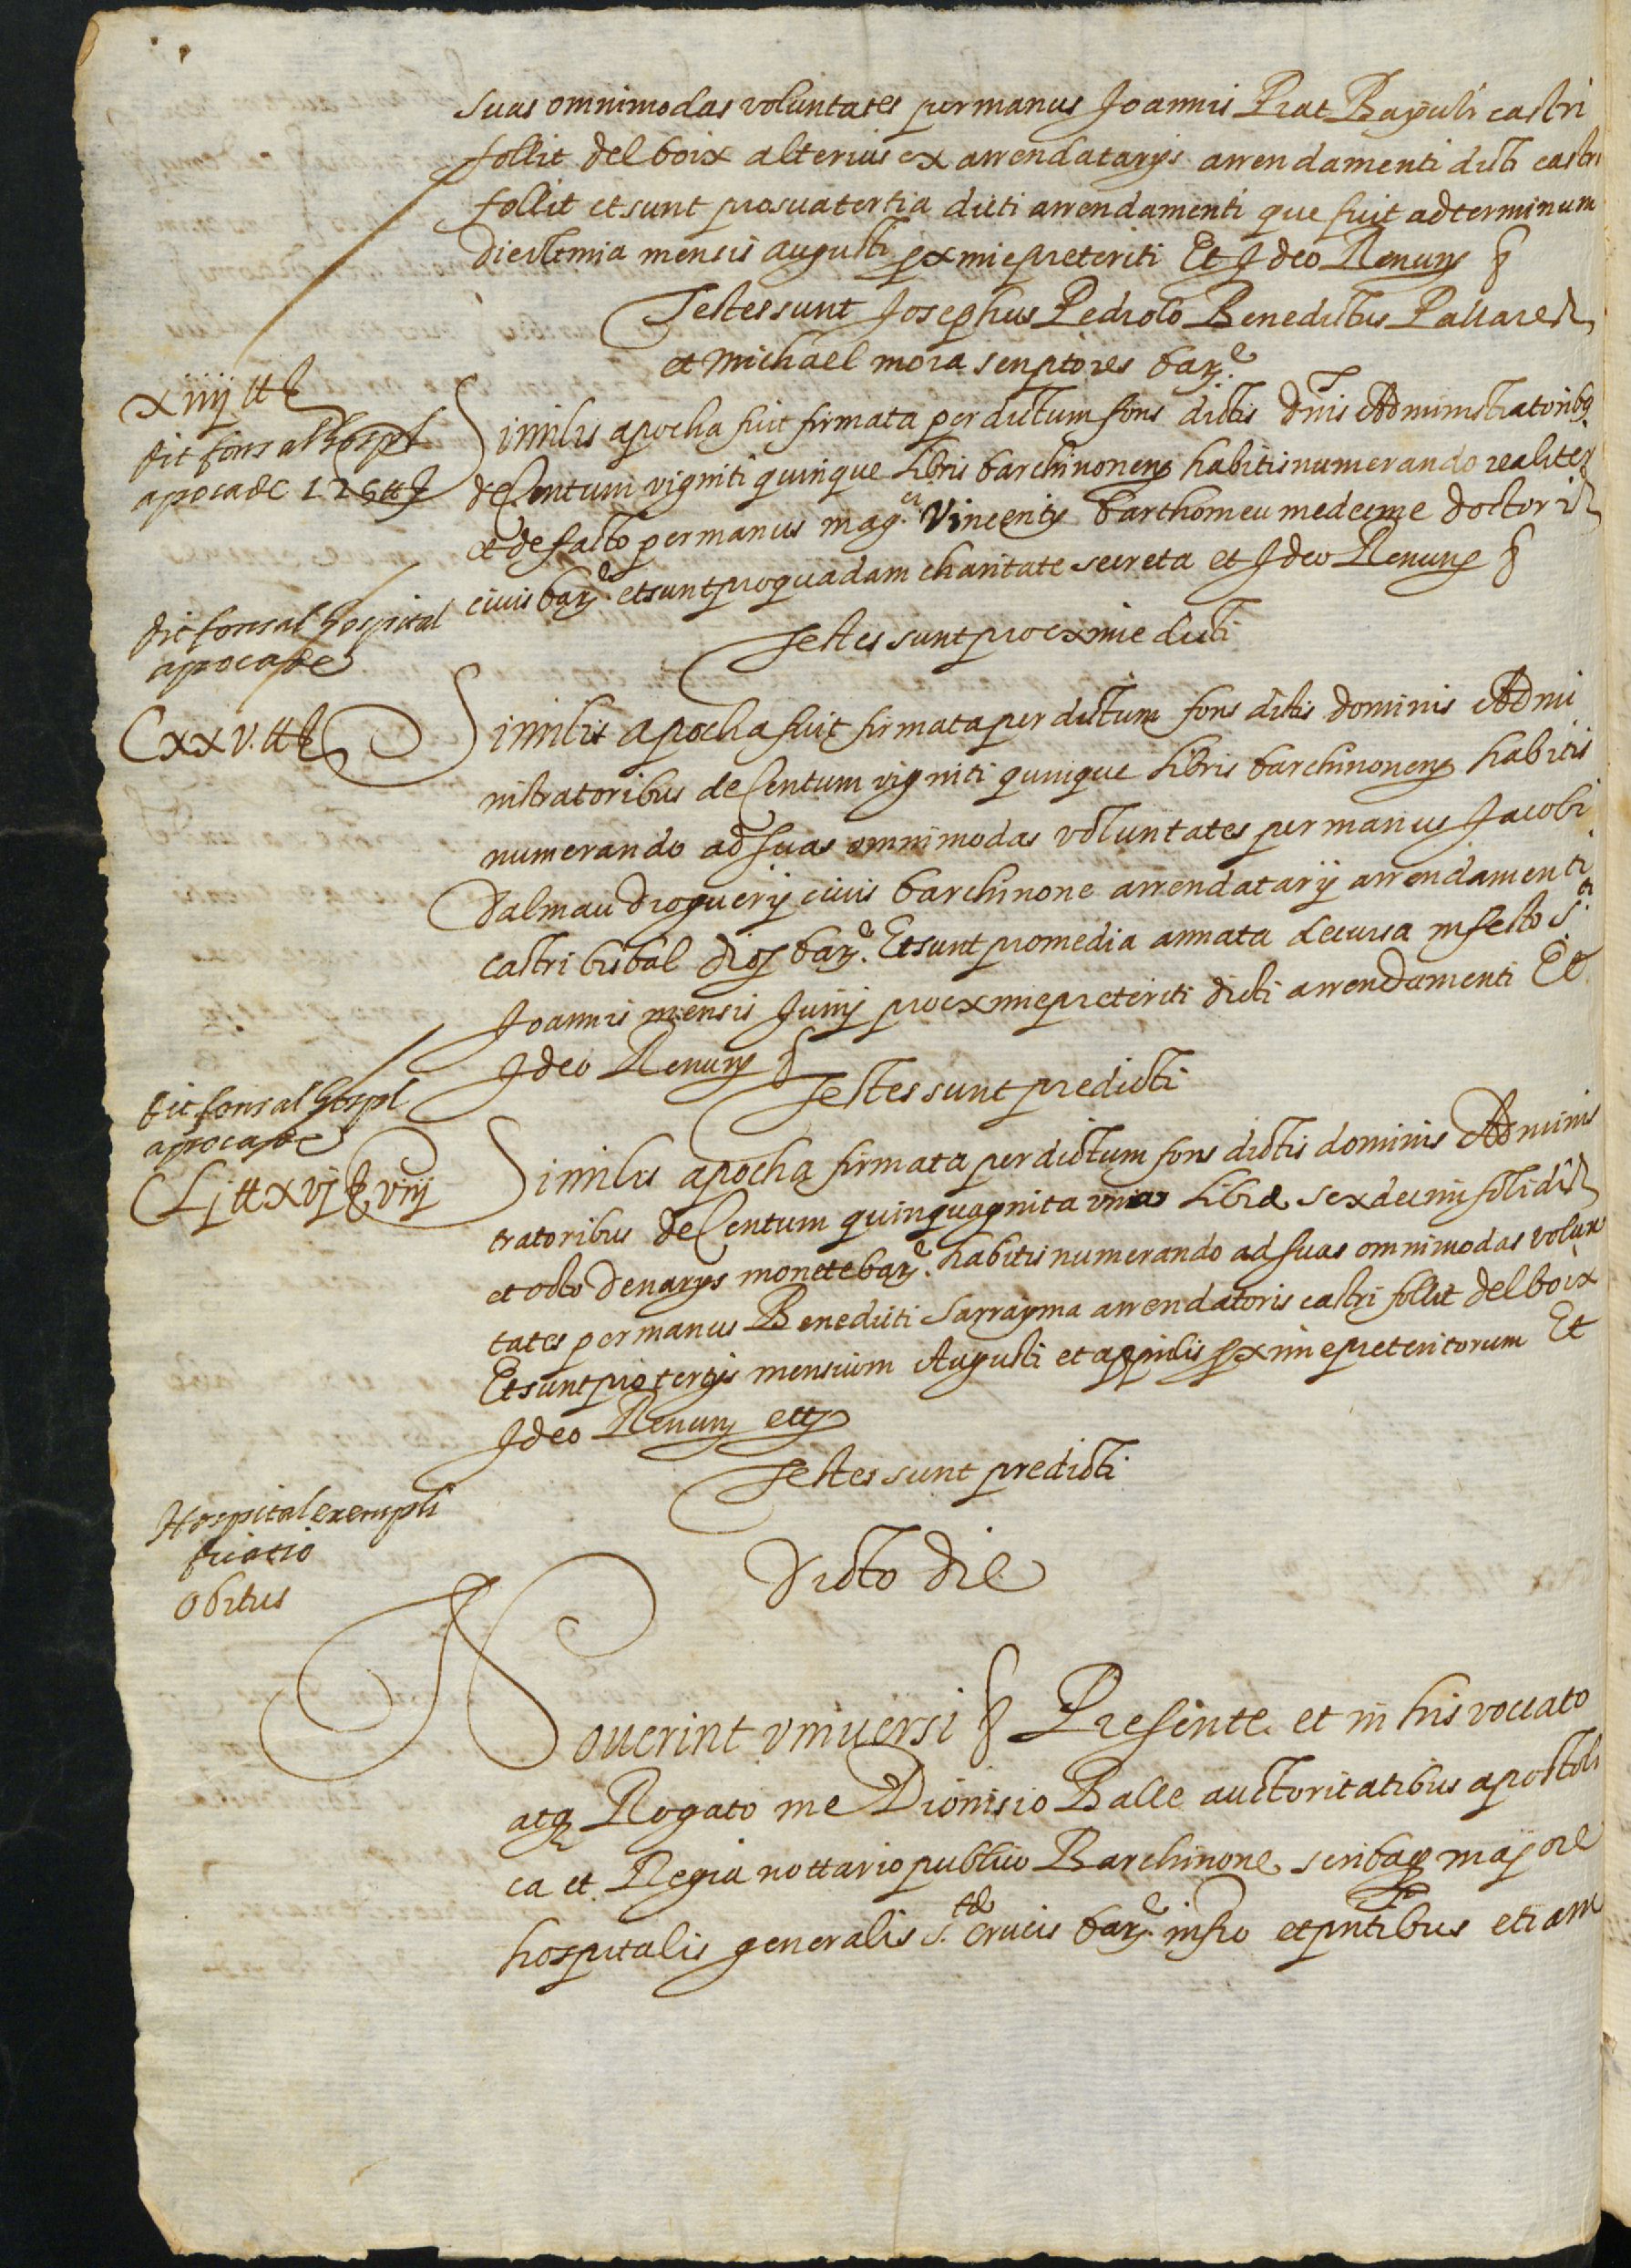 suas omnimodas voluntates per manus Joannis Prat Bayuli castri
follit del boix alterius ex arrendatarijs arrendamenti dicti castri
follit et sunt pro sua tertia dicti arrendamenti que fuit ad terminum
mensis augusti pxime preteriti Et Ideo Renun§ §
Testes sunt Josephus Pedrolo Benedictus Pallares
et Michael mora scriptores barᵉ.
xiiij tt ẞ
dit fons al hospl
apoca de 125 tt ẞ
Similis apocha fuit firmata per dictum fons dictis dnis Administratoribq
de Centum viginti quinque libris barchinonens habitis numerando realiter
et de facto per manus magᶜⁱ. Vincentij barthomeu medecine doctoris
civis barᵉ. et sunt pro quadam charitate secreta et Ideo Renun §
Testes sunt proxime dicti
dit fons al hospital
apoca de
Cxxv. tt ẞ
Similis apocha fuit firmata per dictum fons dictis dominis Admi
nistratoribus de Centum viginti quinque libris barchinonens habitis
numerando ad suas omnimodas voluntates per manus Jacobi
dalmau droguerij civis barchinone arrendatarij arrendamenti
castri bisbal dios barᵉ. Et sunt pro media annata decursa in festo Sᵗⁱ
Joannis mensis Junij proxime preteriti dicti arrendamenti Et
Ideo Renun §
Testes sunt predicti
dit fons al hospl
apoca de
CLj tt xvj ẞ viij
Similis apocha firmata per dictum fons dictis dominis Adminis
tratoribus de Centum quinquaginta una libra sexdecim solidis
et octo denarijs monete barᵉ. habitis numerando ad suas omnimodas volun
tates per manus Benedicti Sarrayma arrendatoris castri follit del boix
Et sunt pro tertijs mensium Augusti et apprilis pxime preteritorum Et
Ideo Renun etc
Testes sunt predicti
Hospital exempli
ficatio
obitus
Dicto die
Noverint universi § Presente et in his voccato
atq Rogato me Dionisio Balle auctoritatibus apostoli
ca et Regia nottario publico Barchinone scribaq majore
hospitalis generalis S.ᵗᵉ crucis barᵉ. infro et pntibus etiam